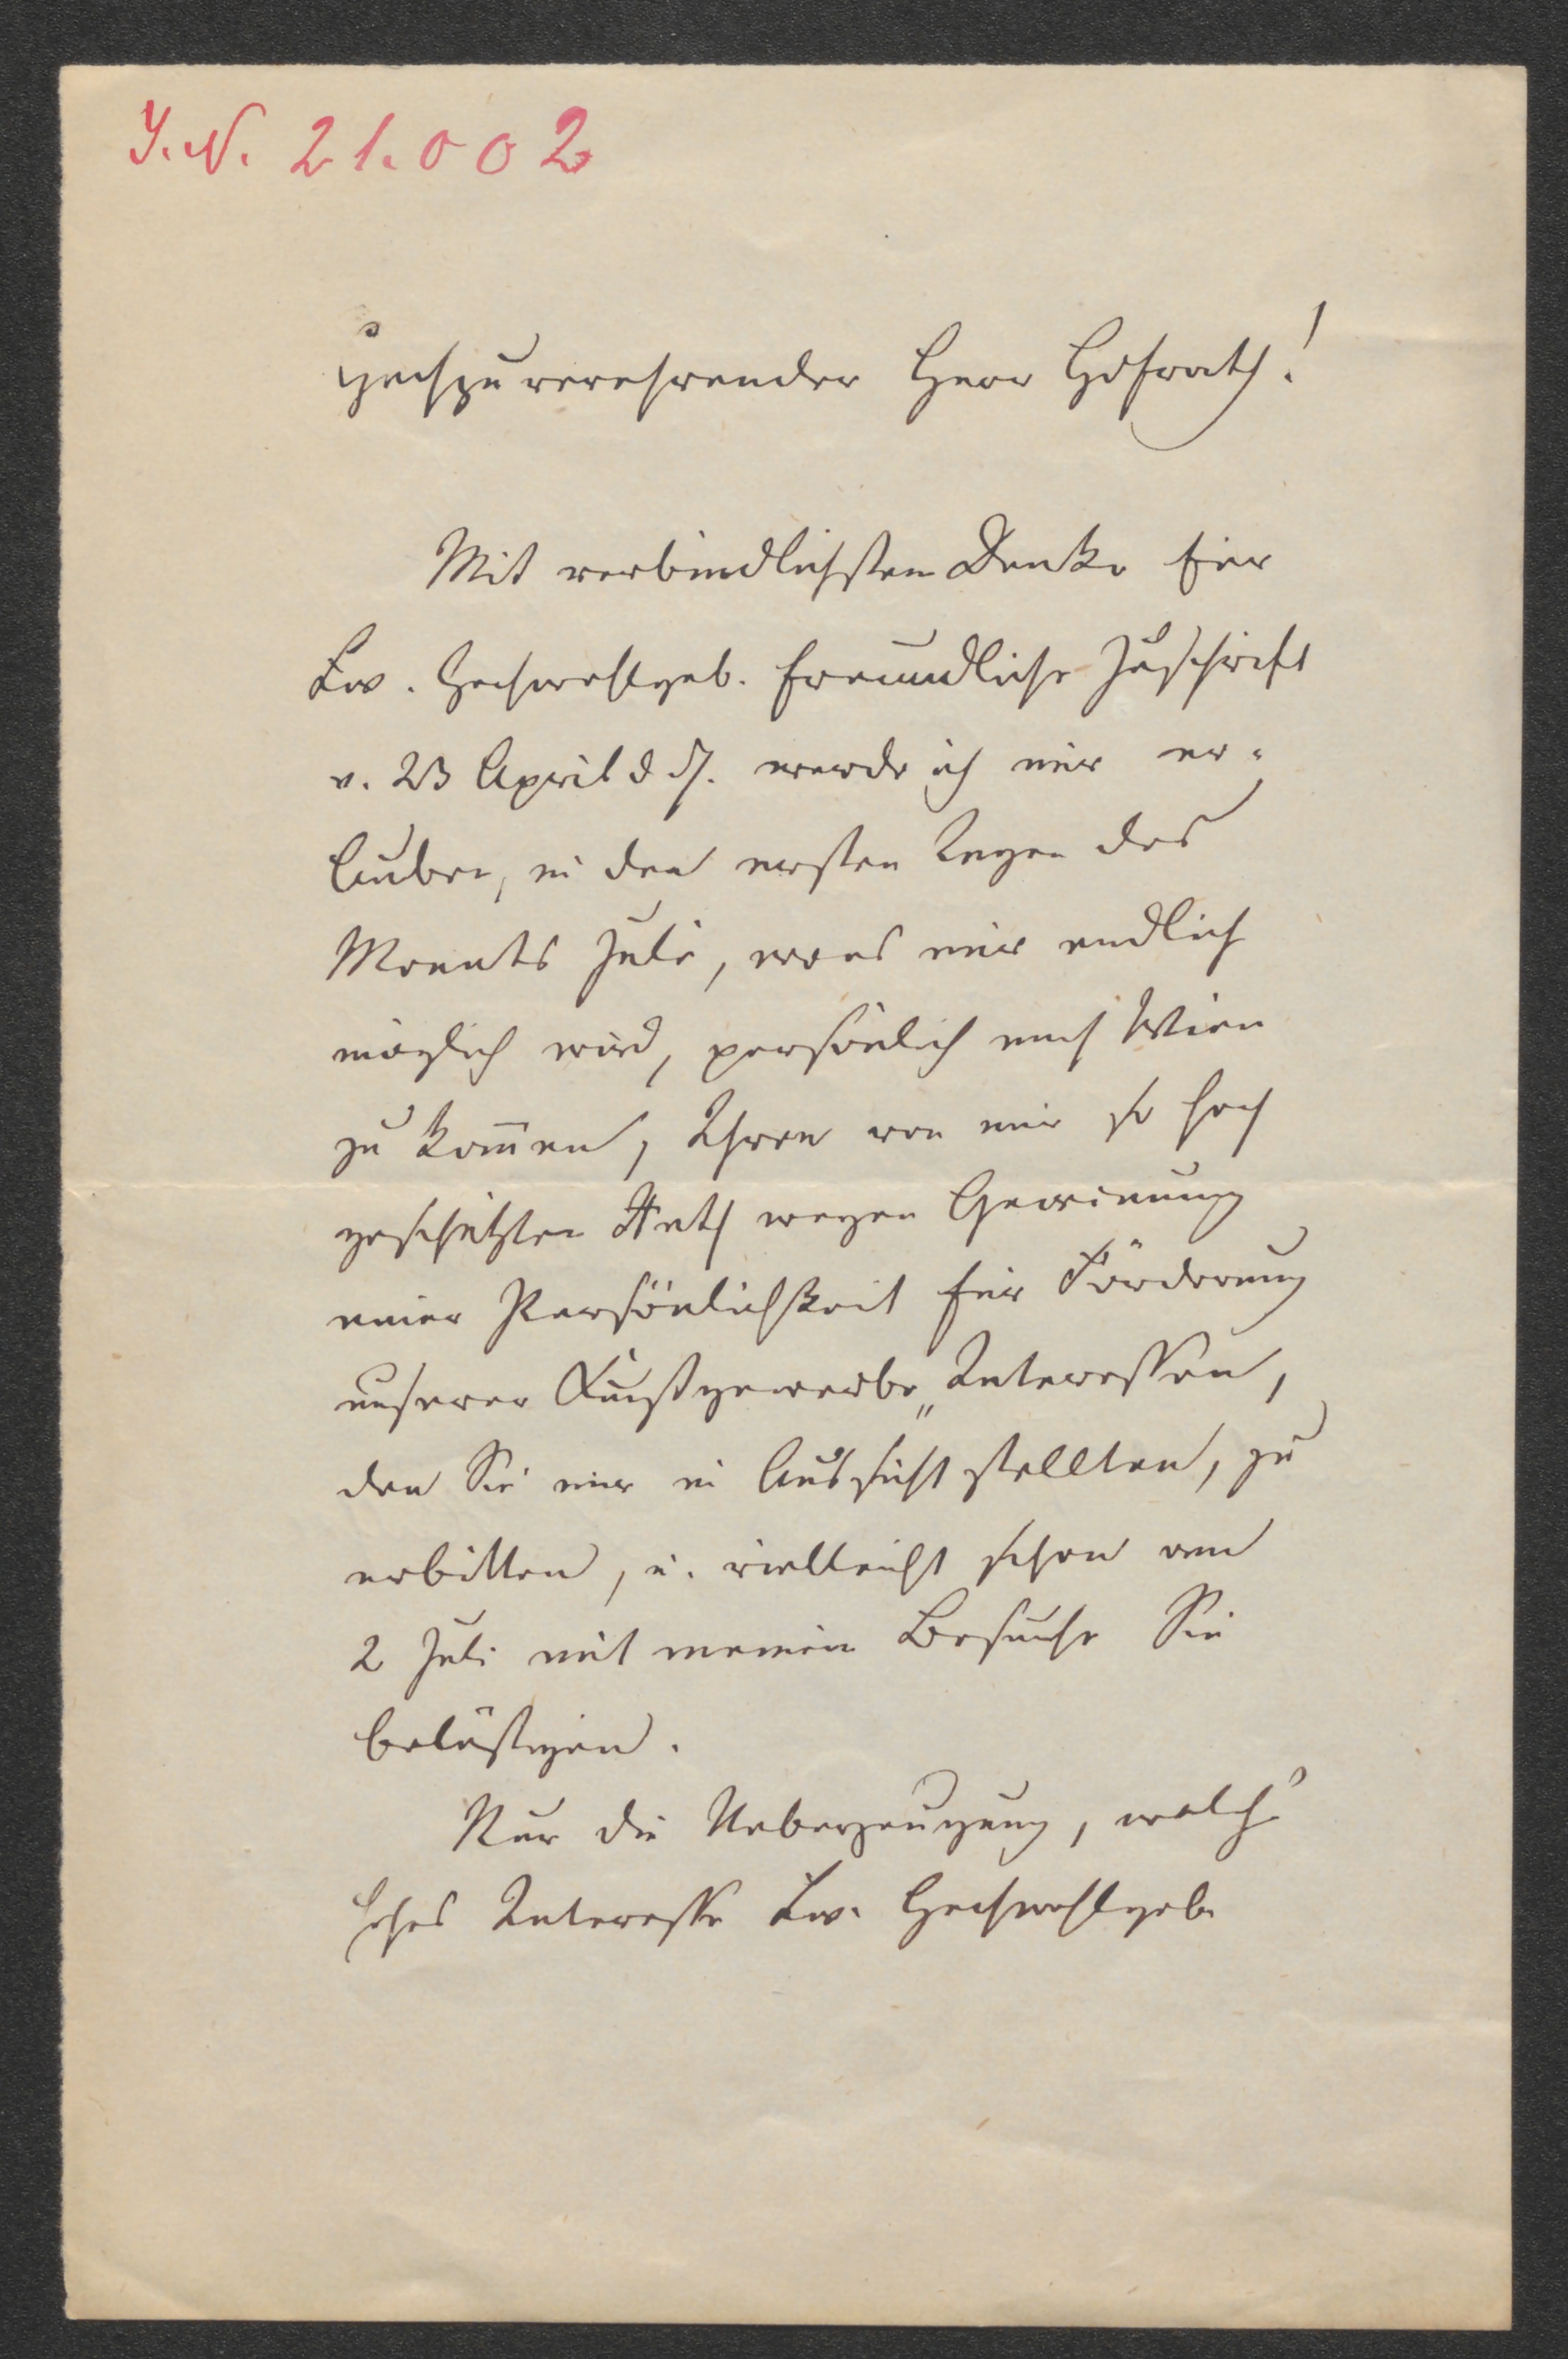 J.N. 21.002
Hochzuverehrender Herr Hofrath!
Mit verbindlichstem Danke für
Ew. Hochwohlgeb. freundliche Zuschrift
v. 23 April d. J. werde ich mir er-
lauben, in den ersten Tagen des
Monats Juli, wo es mir endlich
möglich wird, persönlich nach Wien
zu kom̅en, Ihren von mir so hoch
geschätzten Rath wegen Gewinnung
einer Persönlichkeit für Förderung
unserer Kunstgewerbe-Interessen,
den Sie mir in Aussicht stellten, zu
erbitten, u. vielleicht schon am
2 Juli mit meinem Besuche Sie
belästigen.
Nur die Ueberzeugung, welch'
hohes Interesse Ew. Hochwohlgeb.